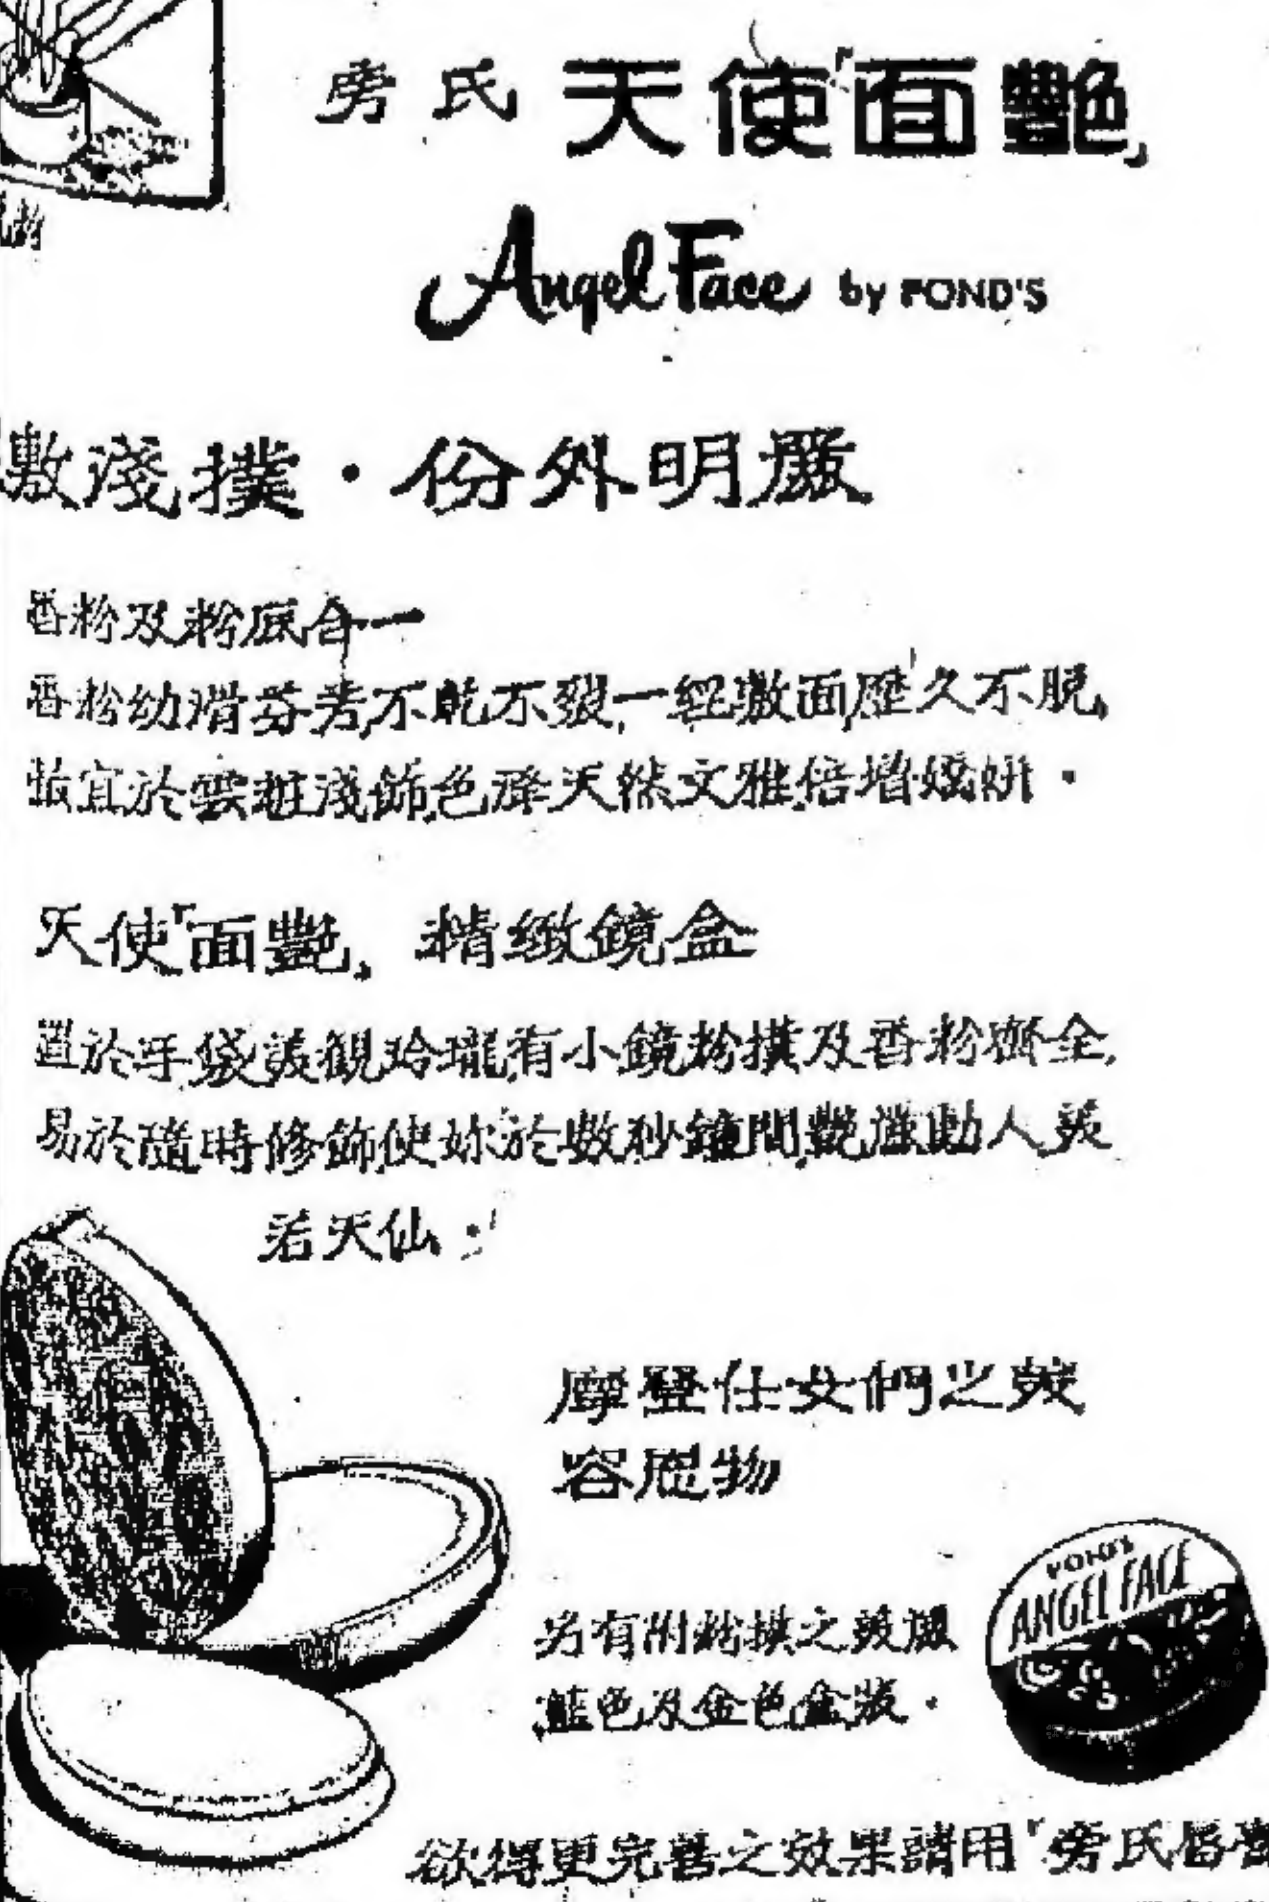 旁氏 天使「面艷」
Angel Face by POND'S
敷淺撲・份外明麗
香粉及粉底合一
香粉幼滑芬芳,不乾不裂,一經敷面,歷久不脫,
最宜於雲粧淺飾,色澤天然,文雅,倍增嬌妍・
天使「面艷」 精緻鏡盒
置於手袋,美觀玲瓏,有小鏡粉撲及香粉齊全,
易於隨時修飾,使妳於數秒鐘間,艷澤動人,美
若天仙・
摩登仕女們之美
容恩物
另有附粉撲之美麗
藍色及金色盒裝・
POND'S
ANGEL FACE
欲得更完善之效果請用「旁氏唇膏